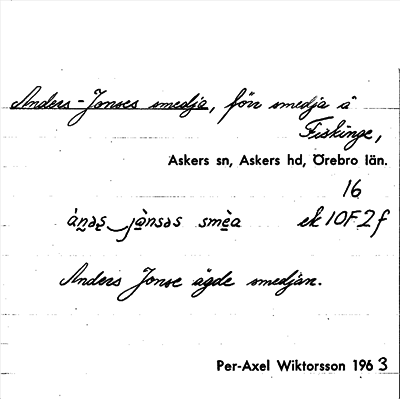 Anders-Jonses smedja, förr smedja å
Fiskinge,
Askers sn, Askers hd, Örebro län.
16
ànəs jànsəs smèa ek 10F2f
Anders Jonse ägde smedjan.
Per-Axel Wiktorsson 1963